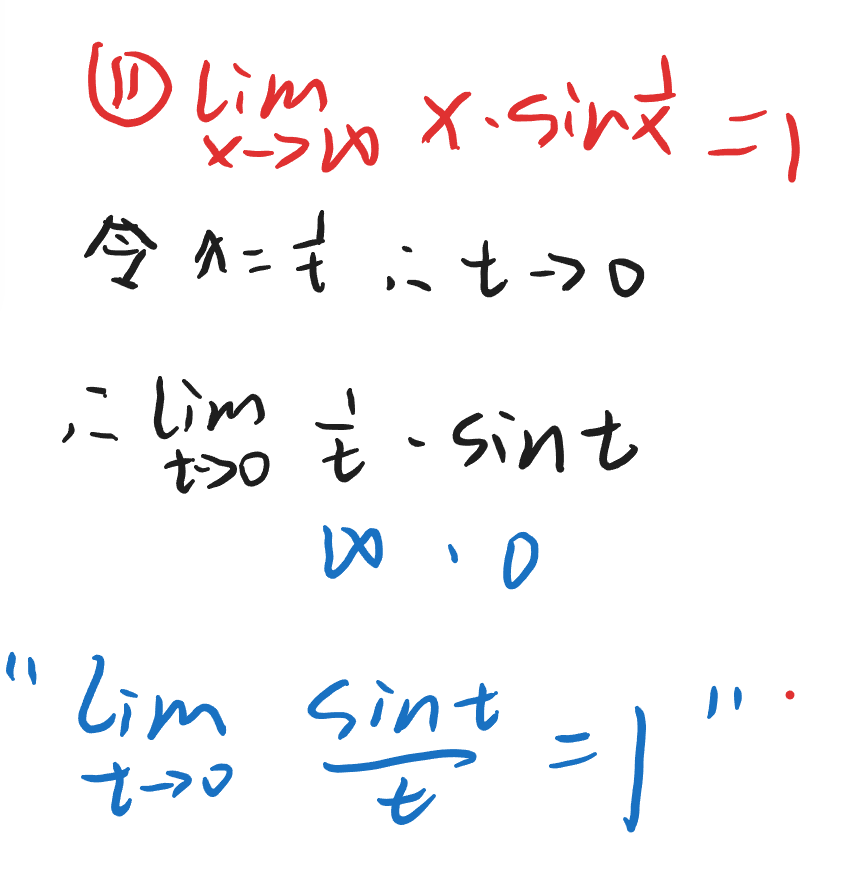 ⑪ lim x→∞ x·sin 1/x = 1
令 x = 1/t ∴ t→0
∴ lim t→0 1/t · sin t
∞ · 0
" lim t→0 sin t / t = 1 "